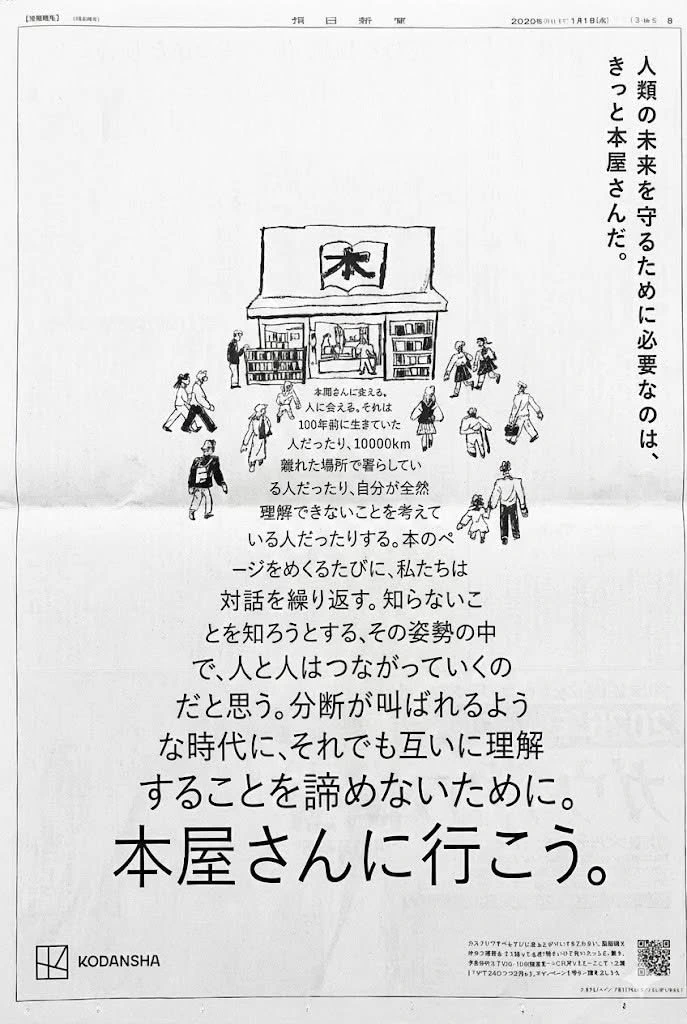 2020
1月1日
8
人類の未来を守るために必要なのは、
きっと本屋さんだ。
本
人に会える。それは
100年前に生きていた
人だったり、10000km
離れた場所で暮らしてい
る人だったり、自分が全然
理解できないことを考えて
いる人だったりする。本のペ
ージをめくるたびに、私たちは
対話を繰り返す。知らないこ
とを知ろうとする、その姿勢の中
で、人と人はつながっていくの
だと思う。分断が叫ばれるよう
な時代に、それでも互いに理解
することを諦めないために。
本屋さんに行こう。
KODANSHA